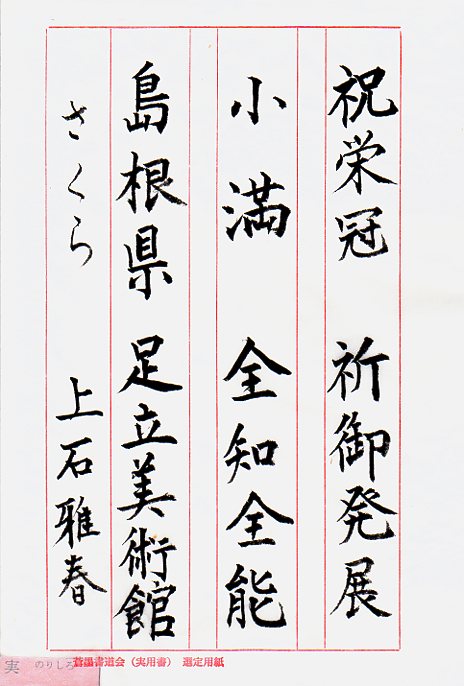 祝栄冠 祈御発展
小満 全知全能
島根県 足立美術館
さくら 上石雅春
実 のりしろ
蒼墨書道会（実用書） 選定用紙